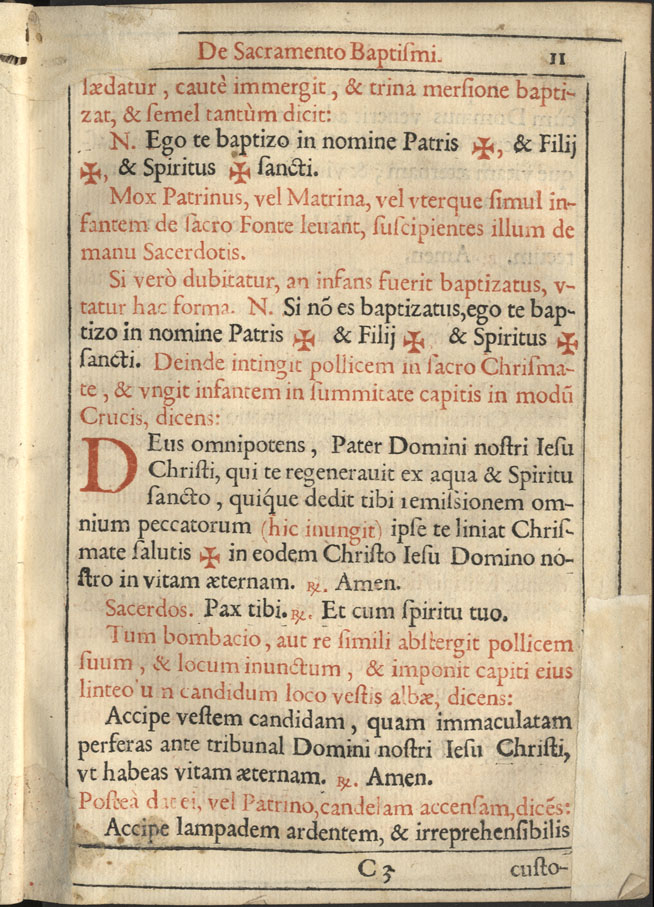 De Sacramento Baptiſmi. 11
lædatur, cautè immergit, & trina merſione bapti-
zat, & ſemel tantùm dicit:
N. Ego te baptizo in nomine Patris ✠, & Filij
✠, & Spiritus ✠ ſancti.
Mox Patrinus, vel Matrina, vel vterque ſimul in-
fantem de ſacro Fonte leuant, ſuſcipientes illum de
manu Sacerdotis.
Si verò dubitatur, an infans fuerit baptizatus, v-
tatur hac forma. N. Si nõ es baptizatus, ego te bap-
tizo in nomine Patris ✠ & Filij ✠ & Spiritus ✠
ſancti. Deinde intingit pollicem in ſacro Chriſma-
te, & vngit infantem in ſummitate capitis in modũ
Crucis, dicens:
DEus omnipotens, Pater Domini noſtri Ieſu
Chriſti, qui te regenerauit ex aqua & Spiritu
ſancto, quiq́ue dedit tibi remiſsionem om-
nium peccatorum (hic inungit) ipſe te liniat Chriſ-
mate ſalutis ✠ in eodem Chriſto Ieſu Domino no-
ſtro in vitam æternam. ℟. Amen.
Sacerdos. Pax tibi. ℟. Et cum ſpiritu tuo.
Tum bombacio, aut re ſimili abſtergit pollicem
ſuum, & locum inunctum, & imponit capiti eius
linteolum candidum loco veſtis albæ, dicens:
Accipe veſtem candidam, quam immaculatam
perferas ante tribunal Domini noſtri Ieſu Chriſti,
vt habeas vitam æternam. ℟. Amen.
Poſteà dat ei, vel Patrino, candelam accenſam, dicẽs:
Accipe lampadem ardentem, & irreprehenſibilis
C 3 cuſto-